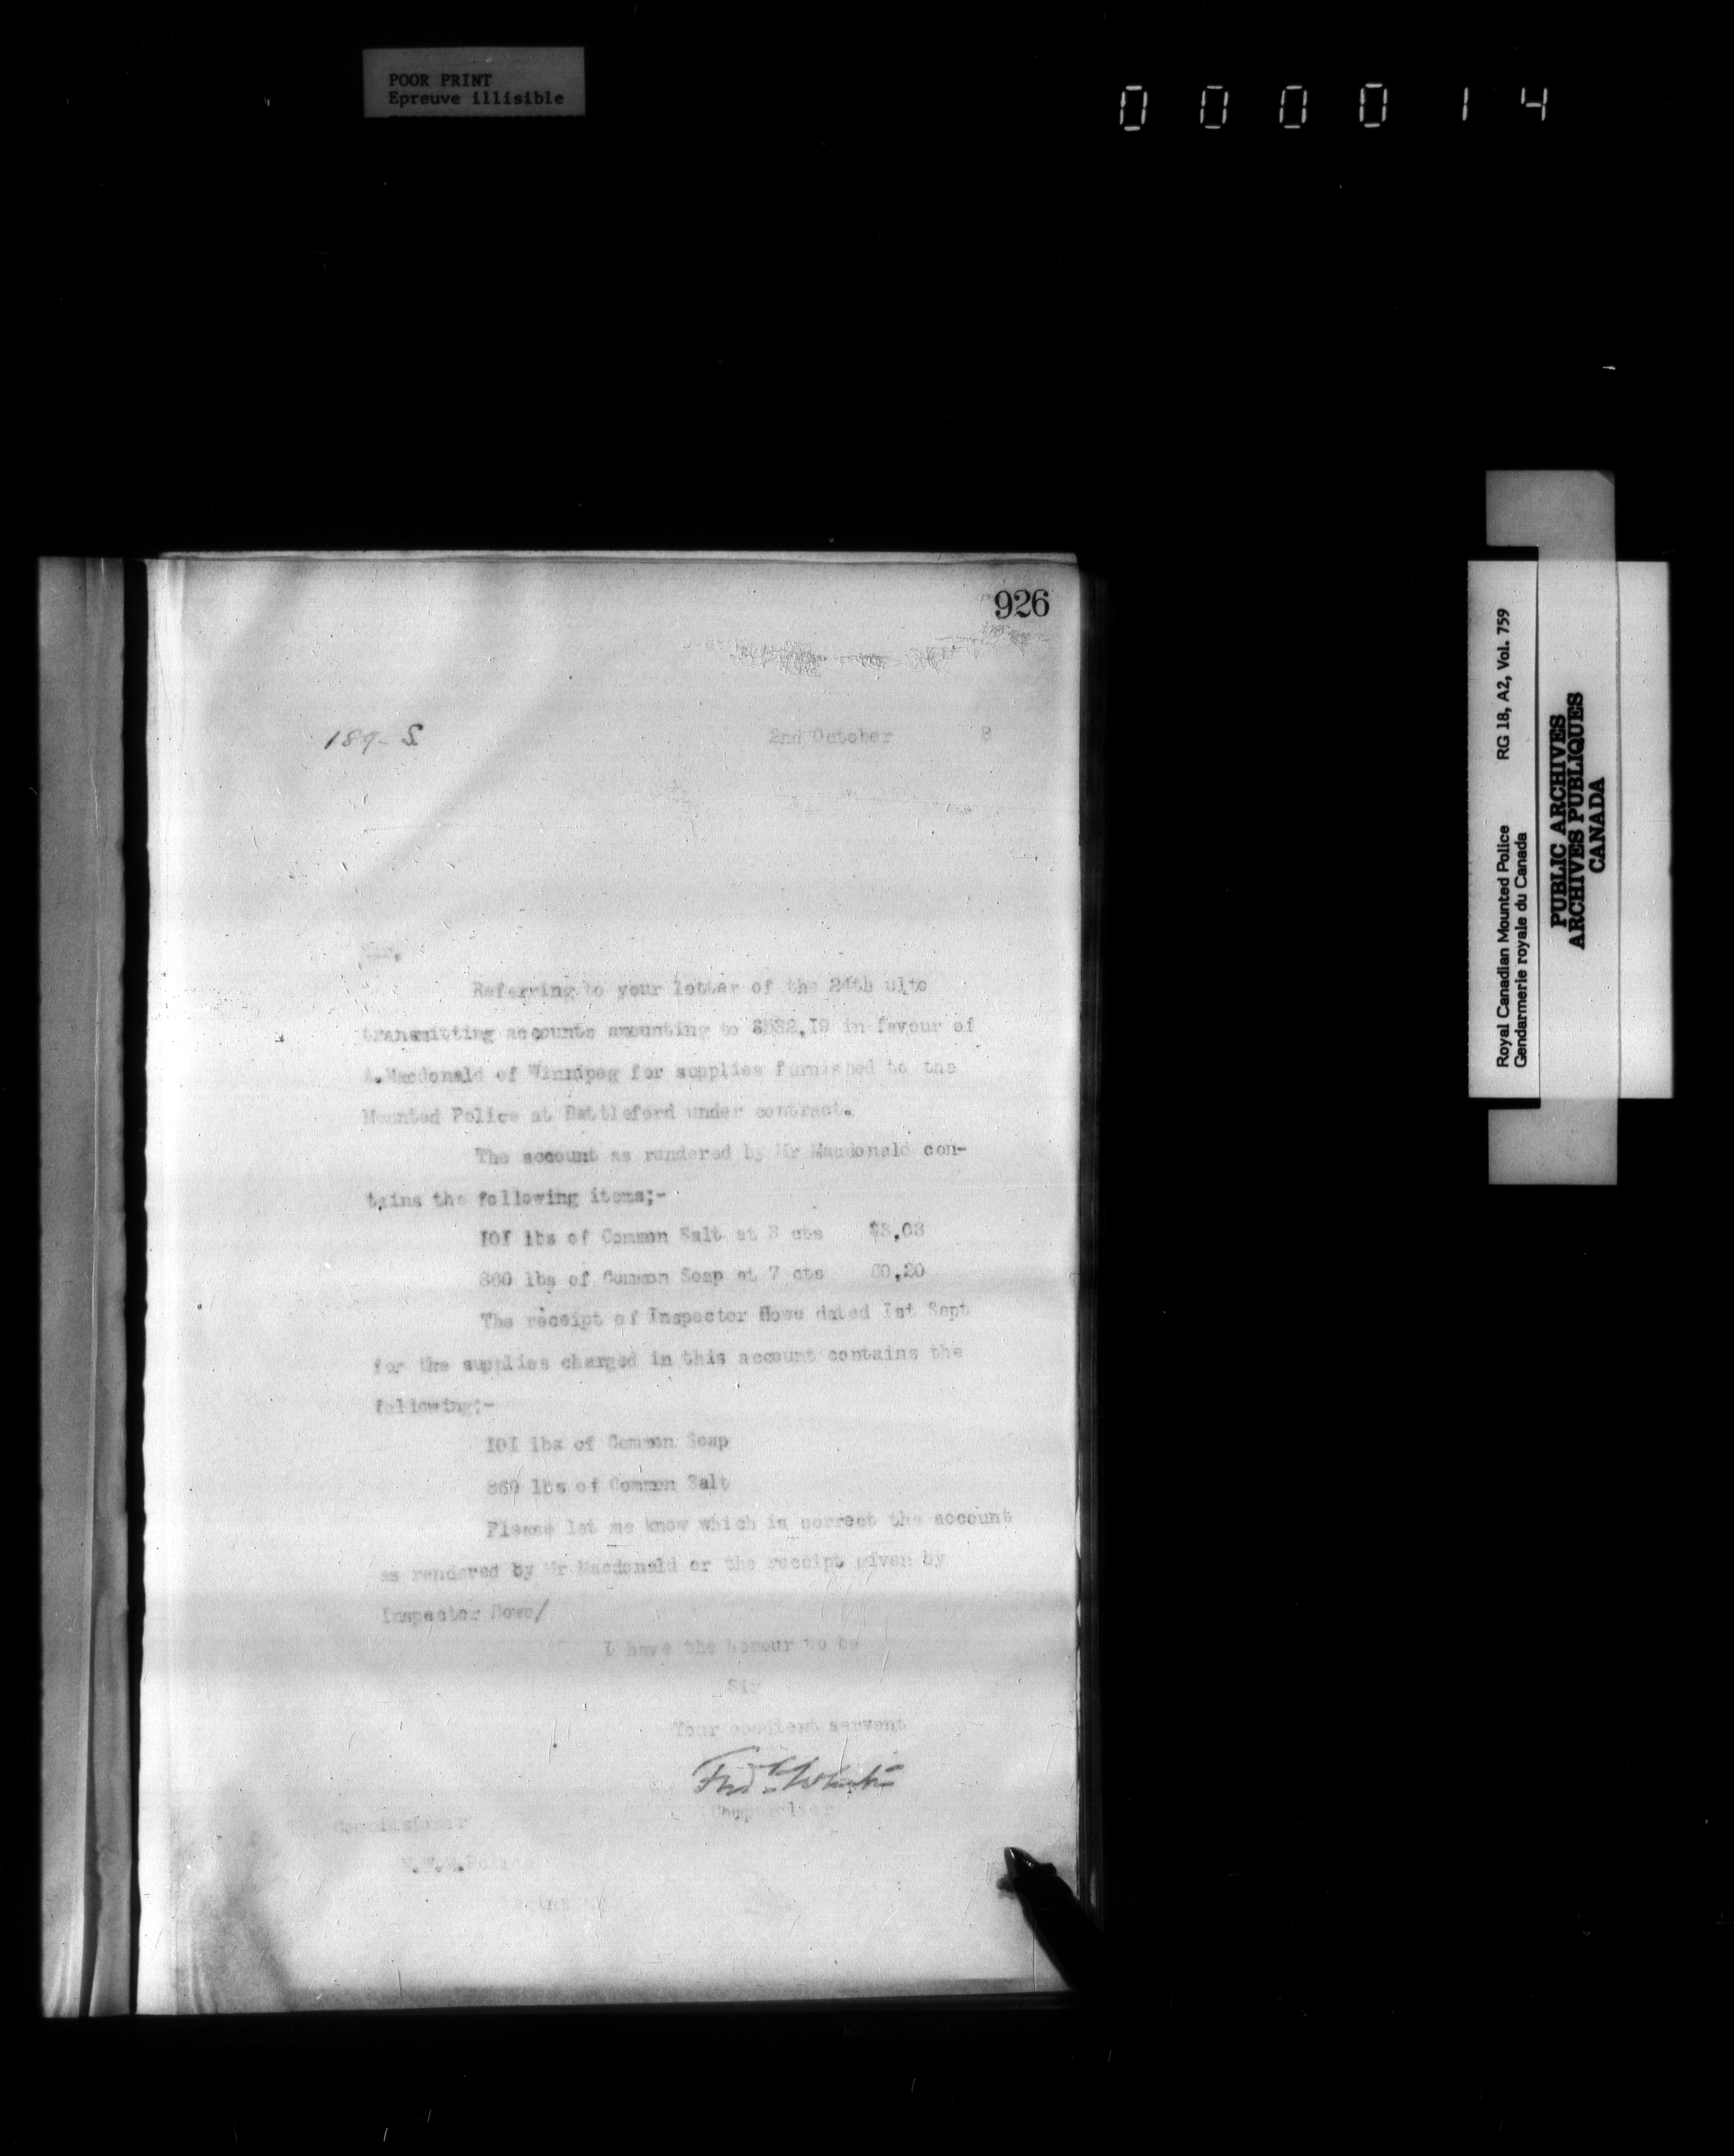 POOR PRINT
Epreuve illisible
0 0 0 0 1 4
926
189-S.
2nd October 8
Sir,
Referring to your letter of the 24th ulto
transmitting accounts amounting to $532,19 in favour of
A.Macdonald of Winnipeg for supplies furnished to the
Mounted Police at Battleford under contract.
The account as rendered by Mr Macdonald con-
tains the following items;-
IOI lbs of Common Salt at 3 cts $3,03
860 lbs of Common Soap at 7 cts 60,20
The receipt of Inspector Howe dated Ist Sept
for the supplies charged in this account contains the
following;-
IOI lbs of Common Soap
860 lbs of Common Salt
Please let me know which is correct the account
as rendered by Mr Macdonald or the receipt given by
Inspector Howe/
I have the honour to be
Sir
Your obedient servant
Fred White
Comptroller
Commissioner
N.W.M.Police
Royal Canadian Mounted Police RG 18, A2, Vol. 759
Gendarmerie royale du Canada
PUBLIC ARCHIVES
ARCHIVES PUBLIQUES
CANADA